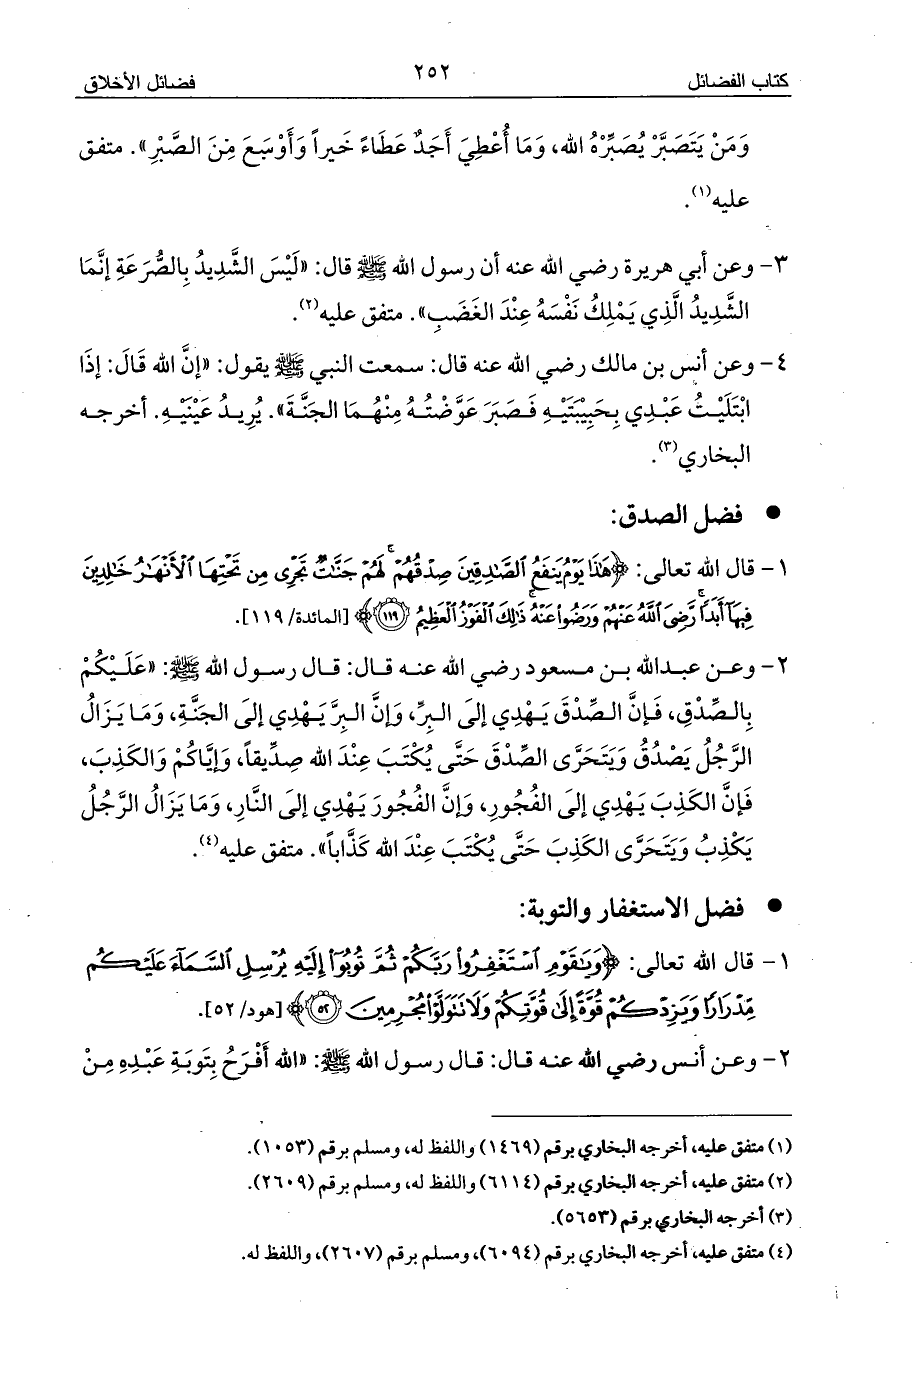 كتاب الفضائل ٢٥٢ فضائل الأخلاق
وَمَنْ يَتَصَبَّرْ يُصَبِّرْهُ الله، وَمَا أُعْطِيَ أَحَدٌ عَطَاءً خَيراً وَأَوْسَعَ مِنَ الصَّبْرِ». متفق
عليه(١).
٣- وعن أبي هريرة رضي الله عنه أن رسول الله ﷺ قال: «لَيْسَ الشَّدِيدُ بِالصُّرَعَةِ إنَّمَا
الشَّدِيدُ الَّذِي يَمْلِكُ نَفْسَهُ عِنْدَ الغَضَبِ». متفق عليه(٢).
٤- وعن أنس بن مالك رضي الله عنه قال: سمعت النبي ﷺ يقول: «إنَّ الله قَالَ: إذَا
ابْتَلَيْتُ عَبْدِي بِحَبِيبَتَيْهِ فَصَبَرَ عَوَّضْتُهُ مِنْهُمَا الجَنَّةَ». يُرِيدُ عَيْنَيْهِ. أخرجه
البخاري(٣).
● فضل الصدق:
١- قال الله تعالى: ﴿هَٰذَا يَوْمُ يَنفَعُ ٱلصَّٰدِقِينَ صِدْقُهُمْ ۚ لَهُمْ جَنَّٰتٌ تَجْرِى مِن تَحْتِهَا ٱلْأَنْهَٰرُ خَٰلِدِينَ
فِيهَآ أَبَدًا ۚ رَّضِىَ ٱللَّهُ عَنْهُمْ وَرَضُوا۟ عَنْهُ ۚ ذَٰلِكَ ٱلْفَوْزُ ٱلْعَظِيمُ ١١٩﴾ [المائدة/ ١١٩].
٢- وعن عبدالله بن مسعود رضي الله عنه قال: قال رسول الله ﷺ: «عَلَيْكُمْ
بِالصِّدْقِ، فَإنَّ الصِّدْقَ يَهْدِي إلَى البِرِّ، وَإنَّ البِرَّ يَهْدِي إلَى الجَنَّةِ، وَمَا يَزَالُ
الرَّجُلُ يَصْدُقُ وَيَتَحَرَّى الصِّدْقَ حَتَّى يُكْتَبَ عِنْدَ الله صِدِّيقاً، وَإيَّاكُمْ وَالكَذِبَ،
فَإنَّ الكَذِبَ يَهْدِي إلَى الفُجُورِ، وَإنَّ الفُجُورَ يَهْدِي إلَى النَّارِ، وَمَا يَزَالُ الرَّجُلُ
يَكْذِبُ وَيَتَحَرَّى الكَذِبَ حَتَّى يُكْتَبَ عِنْدَ الله كَذَّاباً». متفق عليه(٤).
● فضل الاستغفار والتوبة:
١- قال الله تعالى: ﴿وَيَٰقَوْمِ ٱسْتَغْفِرُوا۟ رَبَّكُمْ ثُمَّ تُوبُوٓا۟ إِلَيْهِ يُرْسِلِ ٱلسَّمَآءَ عَلَيْكُم
مِّدْرَارًا وَيَزِدْكُمْ قُوَّةً إِلَىٰ قُوَّتِكُمْ وَلَا تَتَوَلَّوْا۟ مُجْرِمِينَ ٥٢﴾ [هود/ ٥٢].
٢- وعن أنس رضي الله عنه قال: قال رسول الله ﷺ: «الله أَفْرَحُ بِتَوبَةِ عَبْدِهِ مِنْ
(١) متفق عليه، أخرجه البخاري برقم (١٤٦٩) واللفظ له، ومسلم برقم (١٠٥٣).
(٢) متفق عليه، أخرجه البخاري برقم (٦١١٤) واللفظ له، ومسلم برقم (٢٦٠٩).
(٣) أخرجه البخاري برقم (٥٦٥٣).
(٤) متفق عليه، أخرجه البخاري برقم (٦٠٩٤)، ومسلم برقم (٢٦٠٧)، واللفظ له.